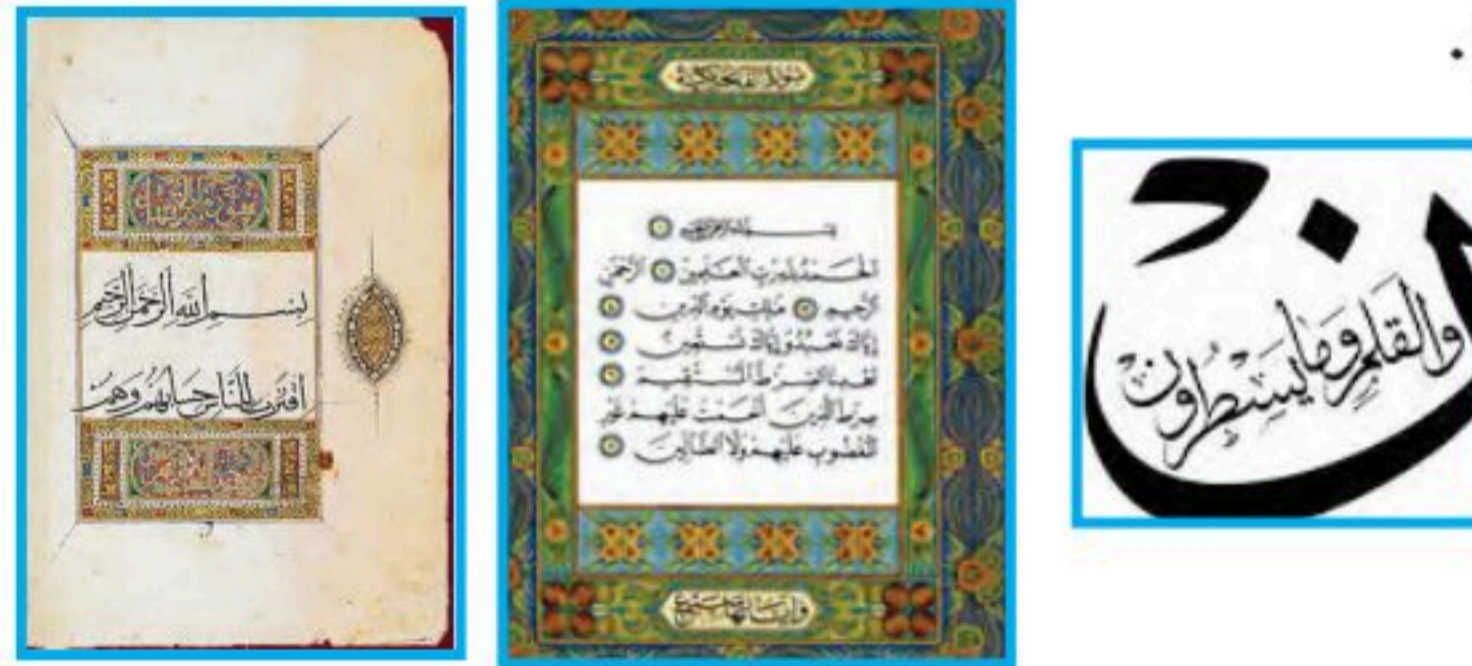 بسم الله الرحمن الرحيم
اقترب للناس حسابهم وهم
سورة الفاتحة
بسم الله الرحمن الرحيم
الحمد لله رب العلمين الرحمن
الرحيم ملك يوم الدين
إياك نعبد وإياك نستعين
اهدنا الصرط المستقيم
صرط الذين أنعمت عليهم غير
المغضوب عليهم ولا الضالين
وآياتها سبع
ن
والقلم وما يسطرون